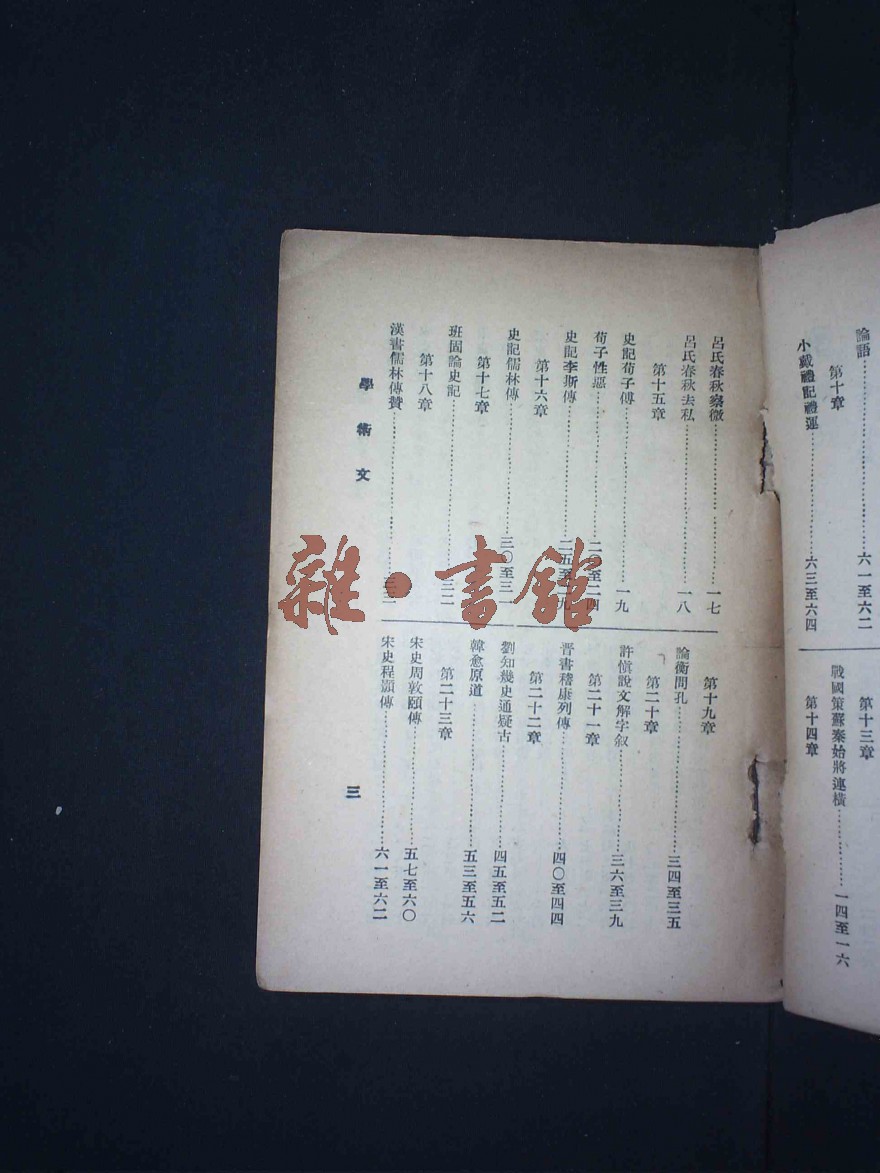 論語……六一至六二
第十章
小戴禮記禮運……六三至六四
第十三章
戰國策蘇秦始將連橫……一四至一六
第十四章
呂氏春秋察微……一七
呂氏春秋去私……一八
第十五章
史記荀子傳……一九
荀子性惡……二〇至二四
史記李斯傳……二五至二九
第十六章
史記儒林傳……三〇至三一
第十七章
班固論史記……三二
第十八章
漢書儒林傳贊……
第十九章
論衡問孔……三四至三五
第二十章
許愼說文解字敘……三六至三九
第二十一章
晉書嵇康列傳……四〇至四四
第二十二章
劉知幾史通疑古……四五至五二
韓愈原道……五三至五六
第二十三章
宋史周敦頤傳……五七至六〇
宋史程顥傳……六一至六二
學術文
三
雜·書館